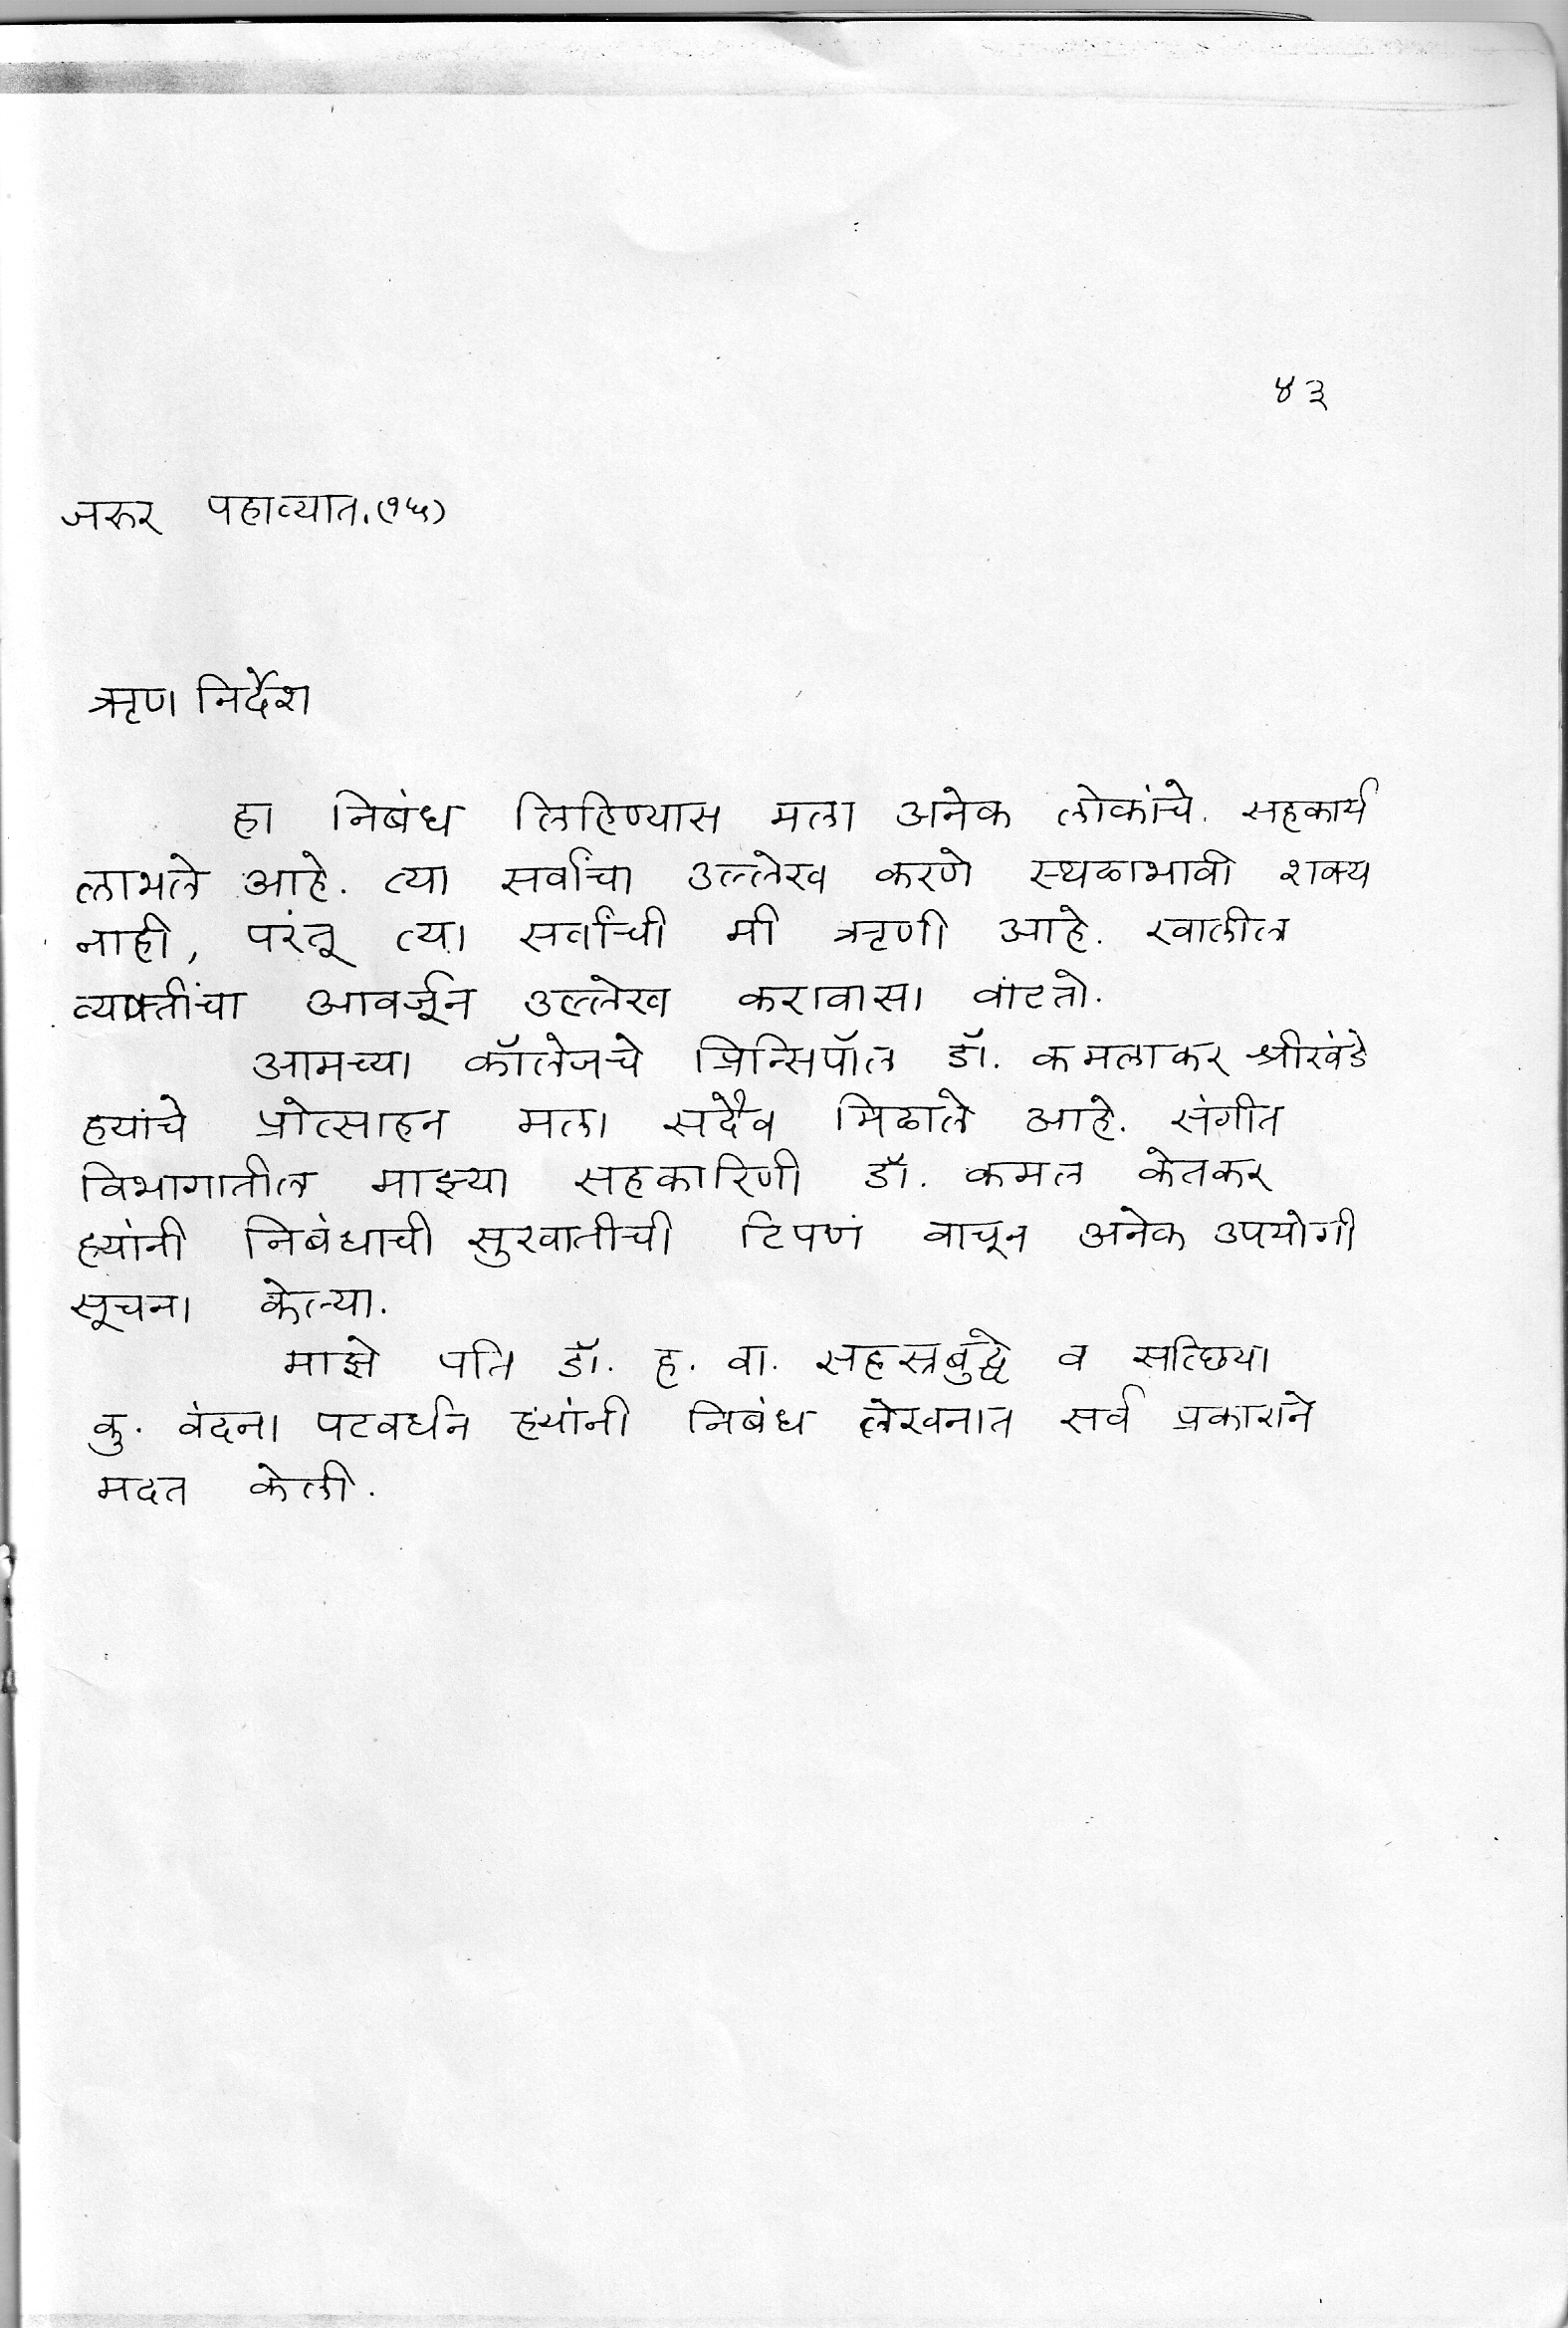 ४३
जरुर पहाव्यात.(१५)
ऋण निर्देश
हा निबंध लिहिण्यास मला अनेक लोकांचे. सहकार्य
लाभले आहे. त्या सर्वांचा उल्लेख करणे स्थळाभावी शक्य
नाही, परंतू त्या सर्वांची मी ऋणी आहे. खालील
व्यक्तींचा आवर्जून उल्लेख करावासा वाटतो.
आमच्या कॉलेजचे प्रिन्सिपॉल डॉ. कमलाकर श्रीखंडे
हयांचे प्रोत्साहन मला सदैव मिळाले आहे. संगीत
विभागातील माझ्या सहकारिणी डॉ. कमल केतकर
ह्यांनी निबंधाची सुरवातीची टिपणं वाचून अनेक उपयोगी
सूचना केल्या.
माझे पति डॉ. ह. वा. सहस्रबुद्धे व सच्छिष्या
कु. वंदना पटवर्धन ह्यांनी निबंध लेखनात सर्व प्रकाराने
मदत केली.